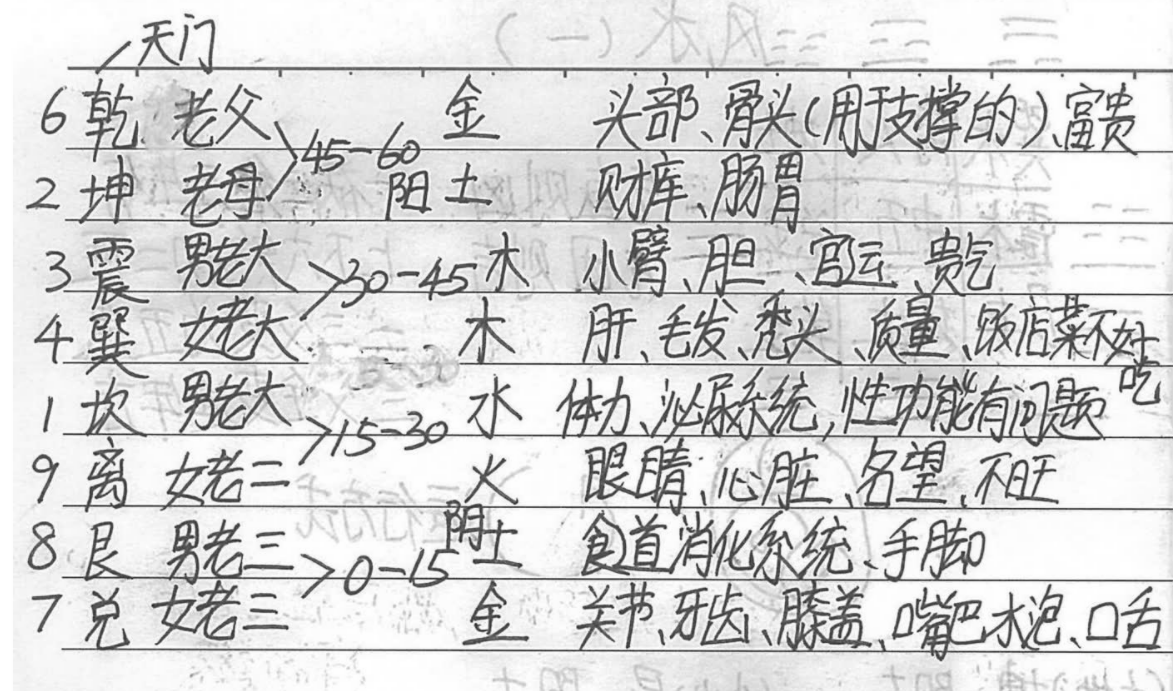 天门
6 乾 老父 >45-60 金 头部、骨头(用于支撑的)、富贵
2 坤 老母 阳土 财库、肠胃
3 震 男老大 >30-45 木 小臂、胆、官运、贵气
4 巽 女老大 木 肝、毛发、秃头、质量、饭店菜不好吃
1 坎 男老大 >15-30 水 体力、泌尿系统,性功能有问题
9 离 女老二 火 眼睛、心脏、名望、不旺
8 艮 男老三 >0-15 阴土 食道消化系统、手脚
7 兑 女老三 金 关节、牙齿、膝盖、口嘴巴水泡、口舌